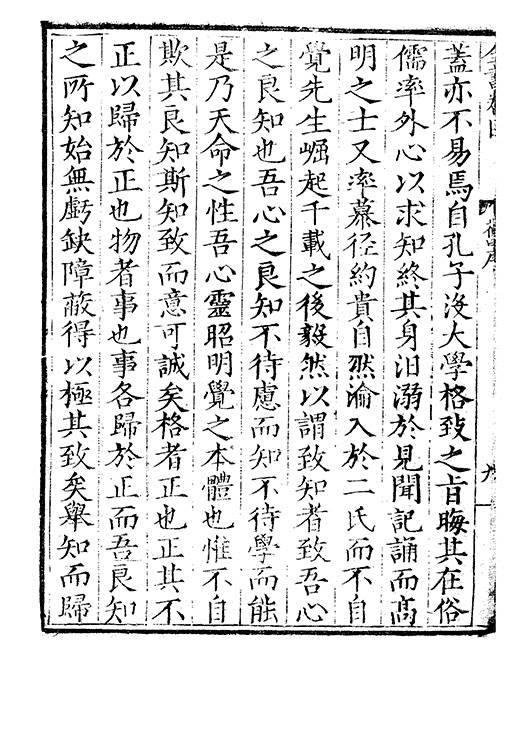 蓋亦不易焉自孔子沒大學格致之旨晦其在俗
儒率外心以求知終其身汩溺於見聞記誦而髙
明之士又率慕径約貴自然淪入於二氏而不自
覺先生崛起千載之後毅然以謂致知者致吾心
之良知也吾心之良知不待慮而知不待學而能
是乃天命之性吾心靈昭明覺之本體也惟不自
欺其良知斯知致而意可誠矣格者正也正其不
正以歸於正也物者事也事各歸於正而吾良知
之所知始無虧缺障蔽得以極其致矣舉知而歸